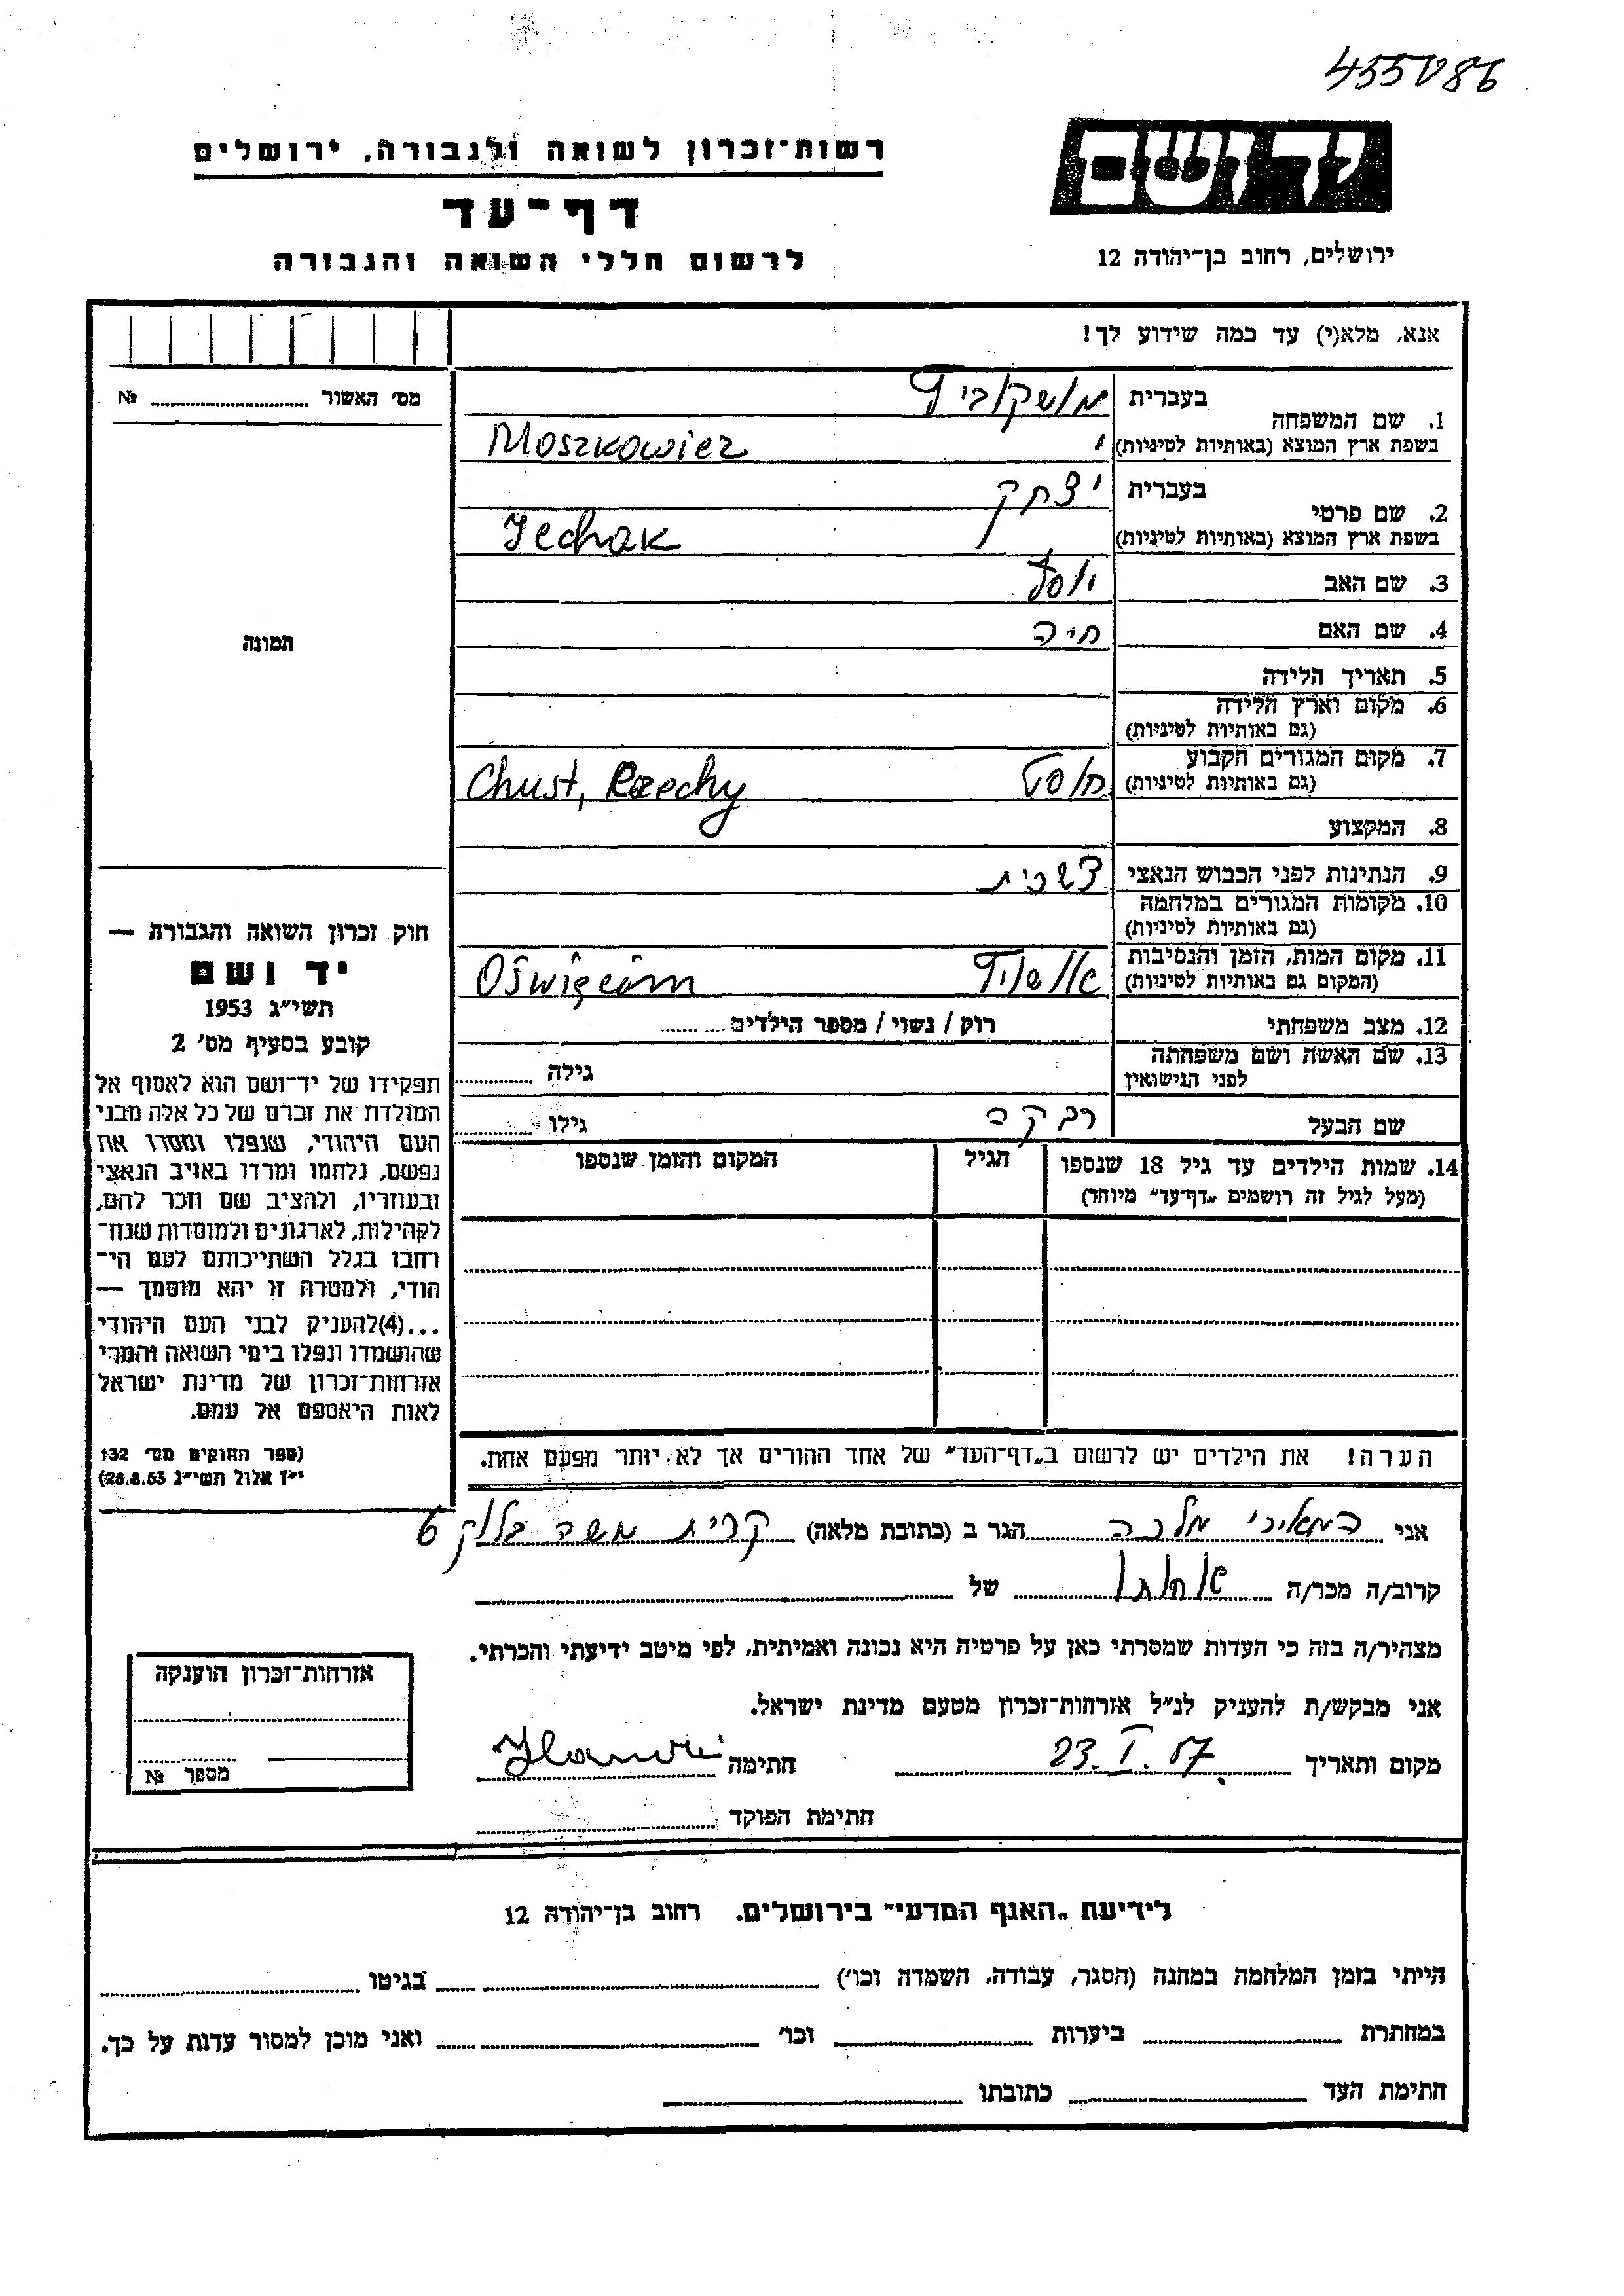 455086
יד ושם
ירושלים, רחוב בן־יהודה 12
רשות־זכרון לשואה ולגבורה, ירושלים
דף־עד
לרשום חללי השואה והגבורה
אנא, מלא(י) עד כמה שידוע לך!
מס׳ האשור № 
תמונה
1. שם המשפחה
בעברית מושקוביץ
בשפת ארץ המוצא (באותיות לטיניות) Moszkowicz
2. שם פרטי
בעברית יצחק
בשפת ארץ המוצא (באותיות לטיניות) Icchak
3. שם האב יוסף
4. שם האם חיה
5. תאריך הלידה
6. מקום וארץ הלידה
(גם באותיות לטיניות)
7. מקום המגורים הקבוע
(גם באותיות לטיניות) חוסט Chust,
8. המקצוע
9. הנתינות לפני הכבוש הנאצי צ׳כית
10. מקומות המגורים במלחמה
(גם באותיות לטיניות)
11. מקום המות, הזמן והנסיבות
(המקום גם באותיות לטיניות) אושויץ Oświęcim
12. מצב משפחתי רוק / נשוי / מספר הילדים
13. שם האשה ושם משפחתה
לפני הנישואין גילה
שם הבעל רבקה גילו
14. שמות הילדים עד גיל 18 שנספו הגיל המקום והזמן שנספו
(מעל לגיל זה רושמים „דף־עד״ מיוחד)
הערה! את הילדים יש לרשום ב„דף־העד״ של אחד ההורים אך לא יותר מפעם אחת.
חוק זכרון השואה והגבורה —
יד ושם
תשי״ג 1953
קובע בסעיף מס׳ 2
תפקידו של יד־ושם הוא לאסוף אל
המולדת את זכרם של כל אלה מבני
העם היהודי, שנפלו ומסרו את
נפשם, נלחמו ומרדו באויב הנאצי
ובעוזריו, ולהציב שם וזכר להם,
לקהילות, לארגונים ולמוסדות שנח־
רחבו בגלל השתייכותם לעם הי־
הודי, ולמטרה זו יהא מוסמך —
...(4)להעניק לבני העם היהודי
שהושמדו ונפלו בימי השואה והמרי
אזרחות־זכרון של מדינת ישראל
לאות היאספם אל עמם.
(ספר החוקים מס׳ 132
י״ז אלול תשי״ג 28.8.53)
אני המאירי מלכה הגר ב (כתובת מלאה) קרית משה בלוק 6
קרוב/ה מכר/ה אחותו של
מצהיר/ה בזה כי העדות שמסרתי כאן על פרטיה היא נכונה ואמיתית, לפי מיטב ידיעתי והכרתי.
אני מבקש/ת להעניק לנ״ל אזרחות־זכרון מטעם מדינת ישראל.
מקום ותאריך 23.I.57 חתימה
חתימת הפוקד
אזרחות־זכרון הוענקה
מספר №
לידיעת „האגף המדעי״ בירושלים, רחוב בן־יהודה 12
הייתי בזמן המלחמה במחנה (הסגר, עבודה, השמדה וכו׳) בגיטו
במחתרת ביערות וכו׳ ואני מוכן למסור עדות על כך.
חתימת העד כתובתו